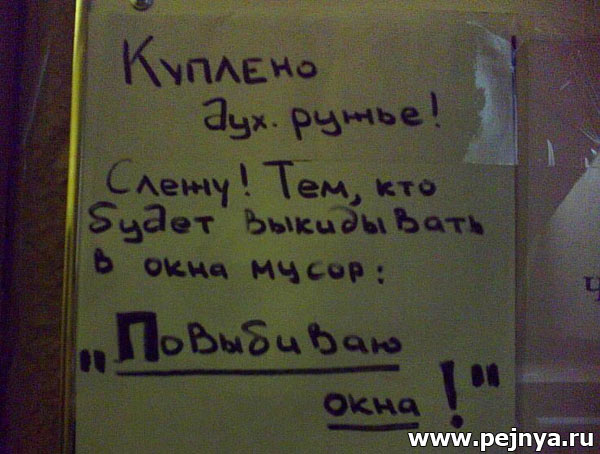 Куплено
дух. ружье!
Слежу! Тем, кто
будет выкидывать
в окна мусор:
"Повыбиваю
окна!"
www.pejnya.ru